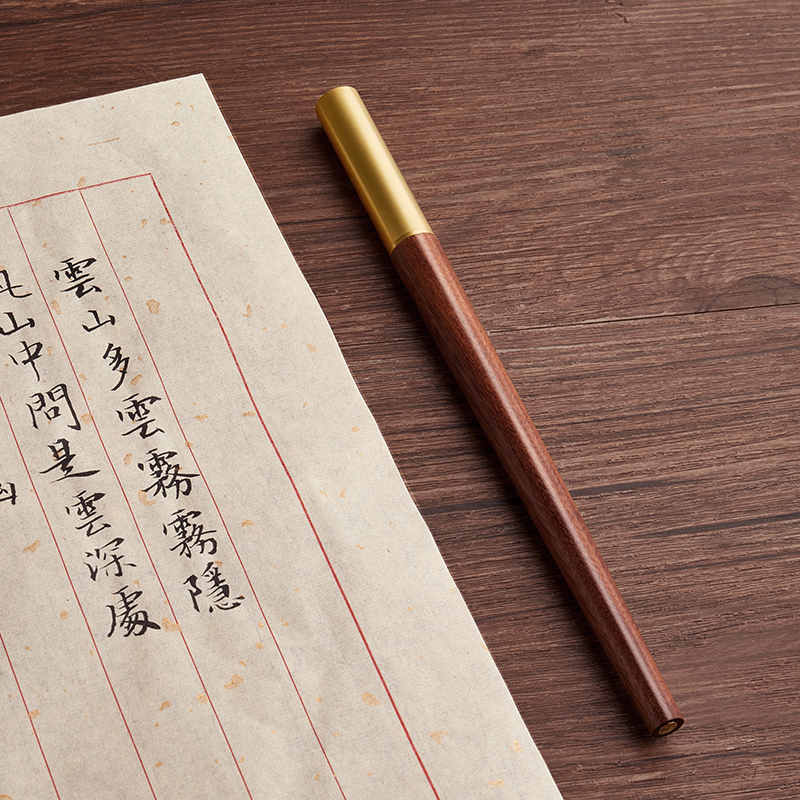 雲山多雲霧霧隱
山中問是雲深處